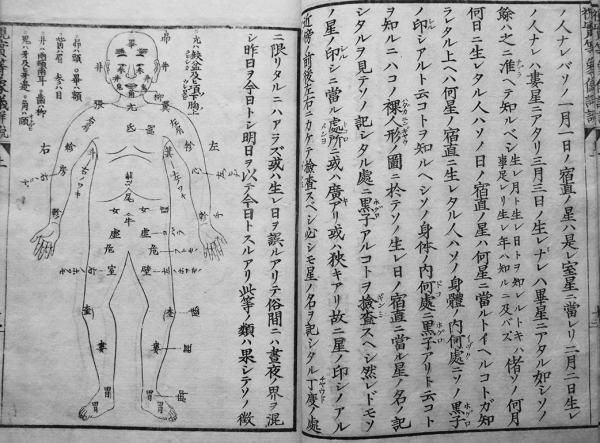 ノ人ナレバソノ一月一日ノ宿直ノ星ハ是レ室星ニ當レリ二月二日生レ
ノ人ナレハ婁星ニアタリ三月三日ノ生レナレハ畢星ニアタル如シソノ
餘ハ之ニ准ヘテ知ルベシ
生レ月ト生レ日トヲ知レルトキハ
事足レリ生レ年ハ知ルニ及バズ
偖ソノ何月
何日ニ生レタル人ハソノ日ノ宿直ノ星ハ何星ニ當ルトイヘルコトガ知
ラレタル上ヘハ何星ノ宿直ニ生レタル人ハソノ身體ノ内何處ニソノ黒子
ノ印シアルト云コトヲ知ルヘシソノ身体ノ内何處ニ黒子アリト云コト
ヲ知ルニハコノ裸人形ノ圖ニ於テソノ生レ日ノ宿直ニ當ル星ノ名ノ記
シタルヲ見テソノ記シタル處ニ黒子アルコトヲ撿査スヘシ然レドモソ
ノ星ノ印シニ當ル處ロ或ハ廣キアリ或ハ狹キアリ故ニ星ノ印シノアル
近塝前後左右ニカケテ撿査スベシ必シモ星ノ名ヲ記シタル丁度ノ處
ニ限リタルニハアラズ或ハ生レ日ヲ誤ルアリテ俗間ニハ晝夜ノ界ヲ混
シ昨日ヲ今日トシ明日ヲ以テ今日トスルアリ此等ノ類ハ果シテソノ徴
昴
亢
張
翼
左
右
心
房
軫
箕
尾
牛
女
女
虚
虚
危
危
室
壁
奎
婁
胃
胃